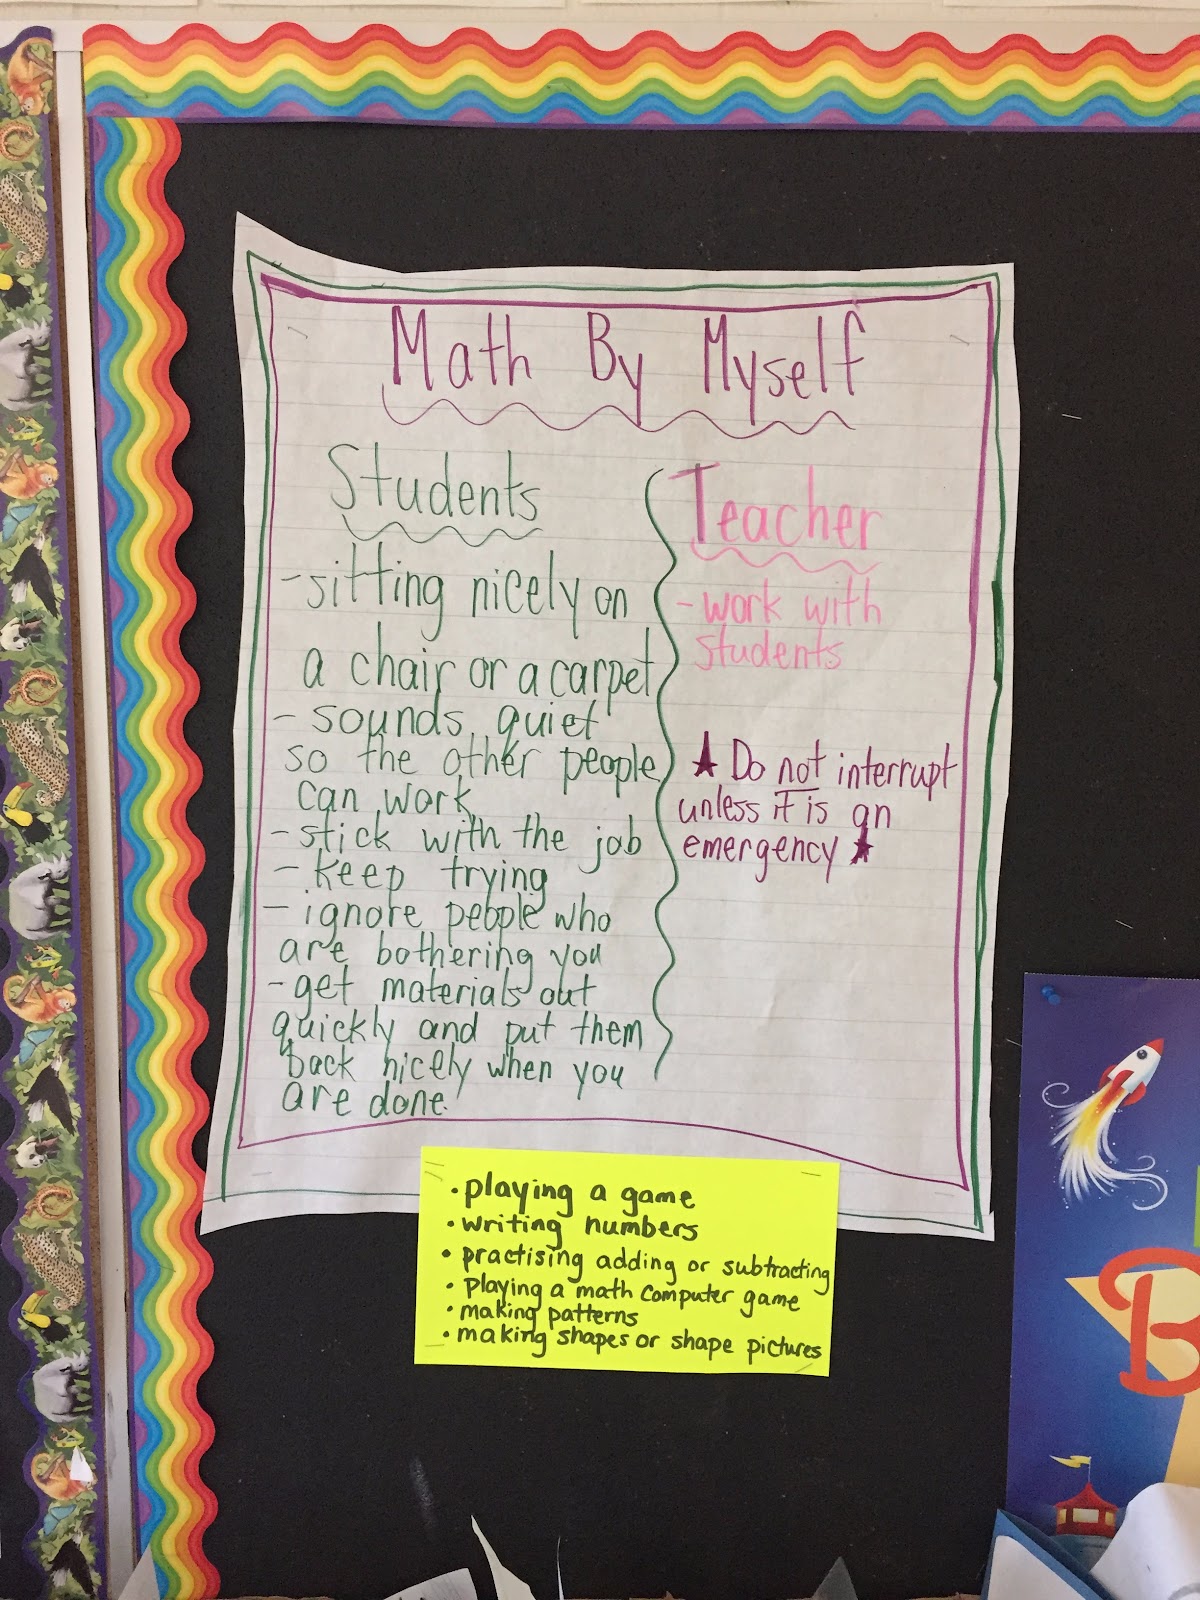 Math By Myself
Students
- sitting nicely on
a chair or a carpet
- sounds quiet
so the other people
can work
- stick with the job
- keep trying
- ignore people who
are bothering you
- get materials out
quickly and put them
back nicely when you
are done.
Teacher
- work with
students
★ Do not interrupt
unless it is an
emergency ★
• playing a game
• writing numbers
• practising adding or subtracting
• playing a math computer game
• making patterns
• making shapes or shape pictures
B